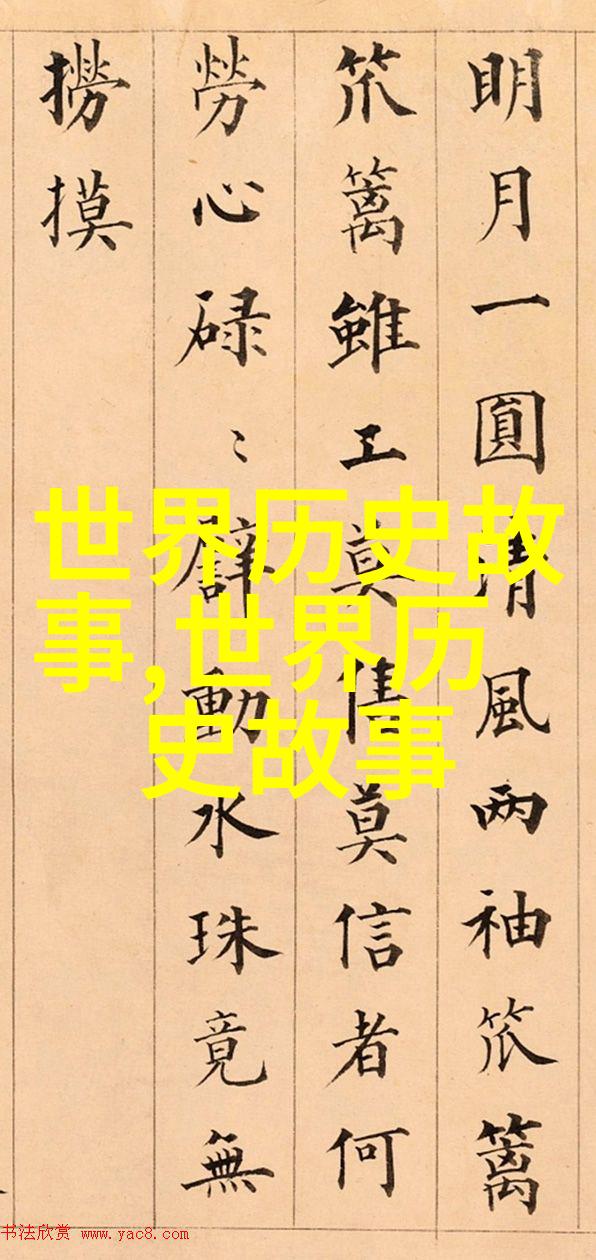 明月一圓清風两袖笊篱
笊篱雖工莫莫信者何
勞心碌〻動水珠竟無
撈摸
世界历史故
事,世界历
史故事
书法欣赏 www.yac8.com